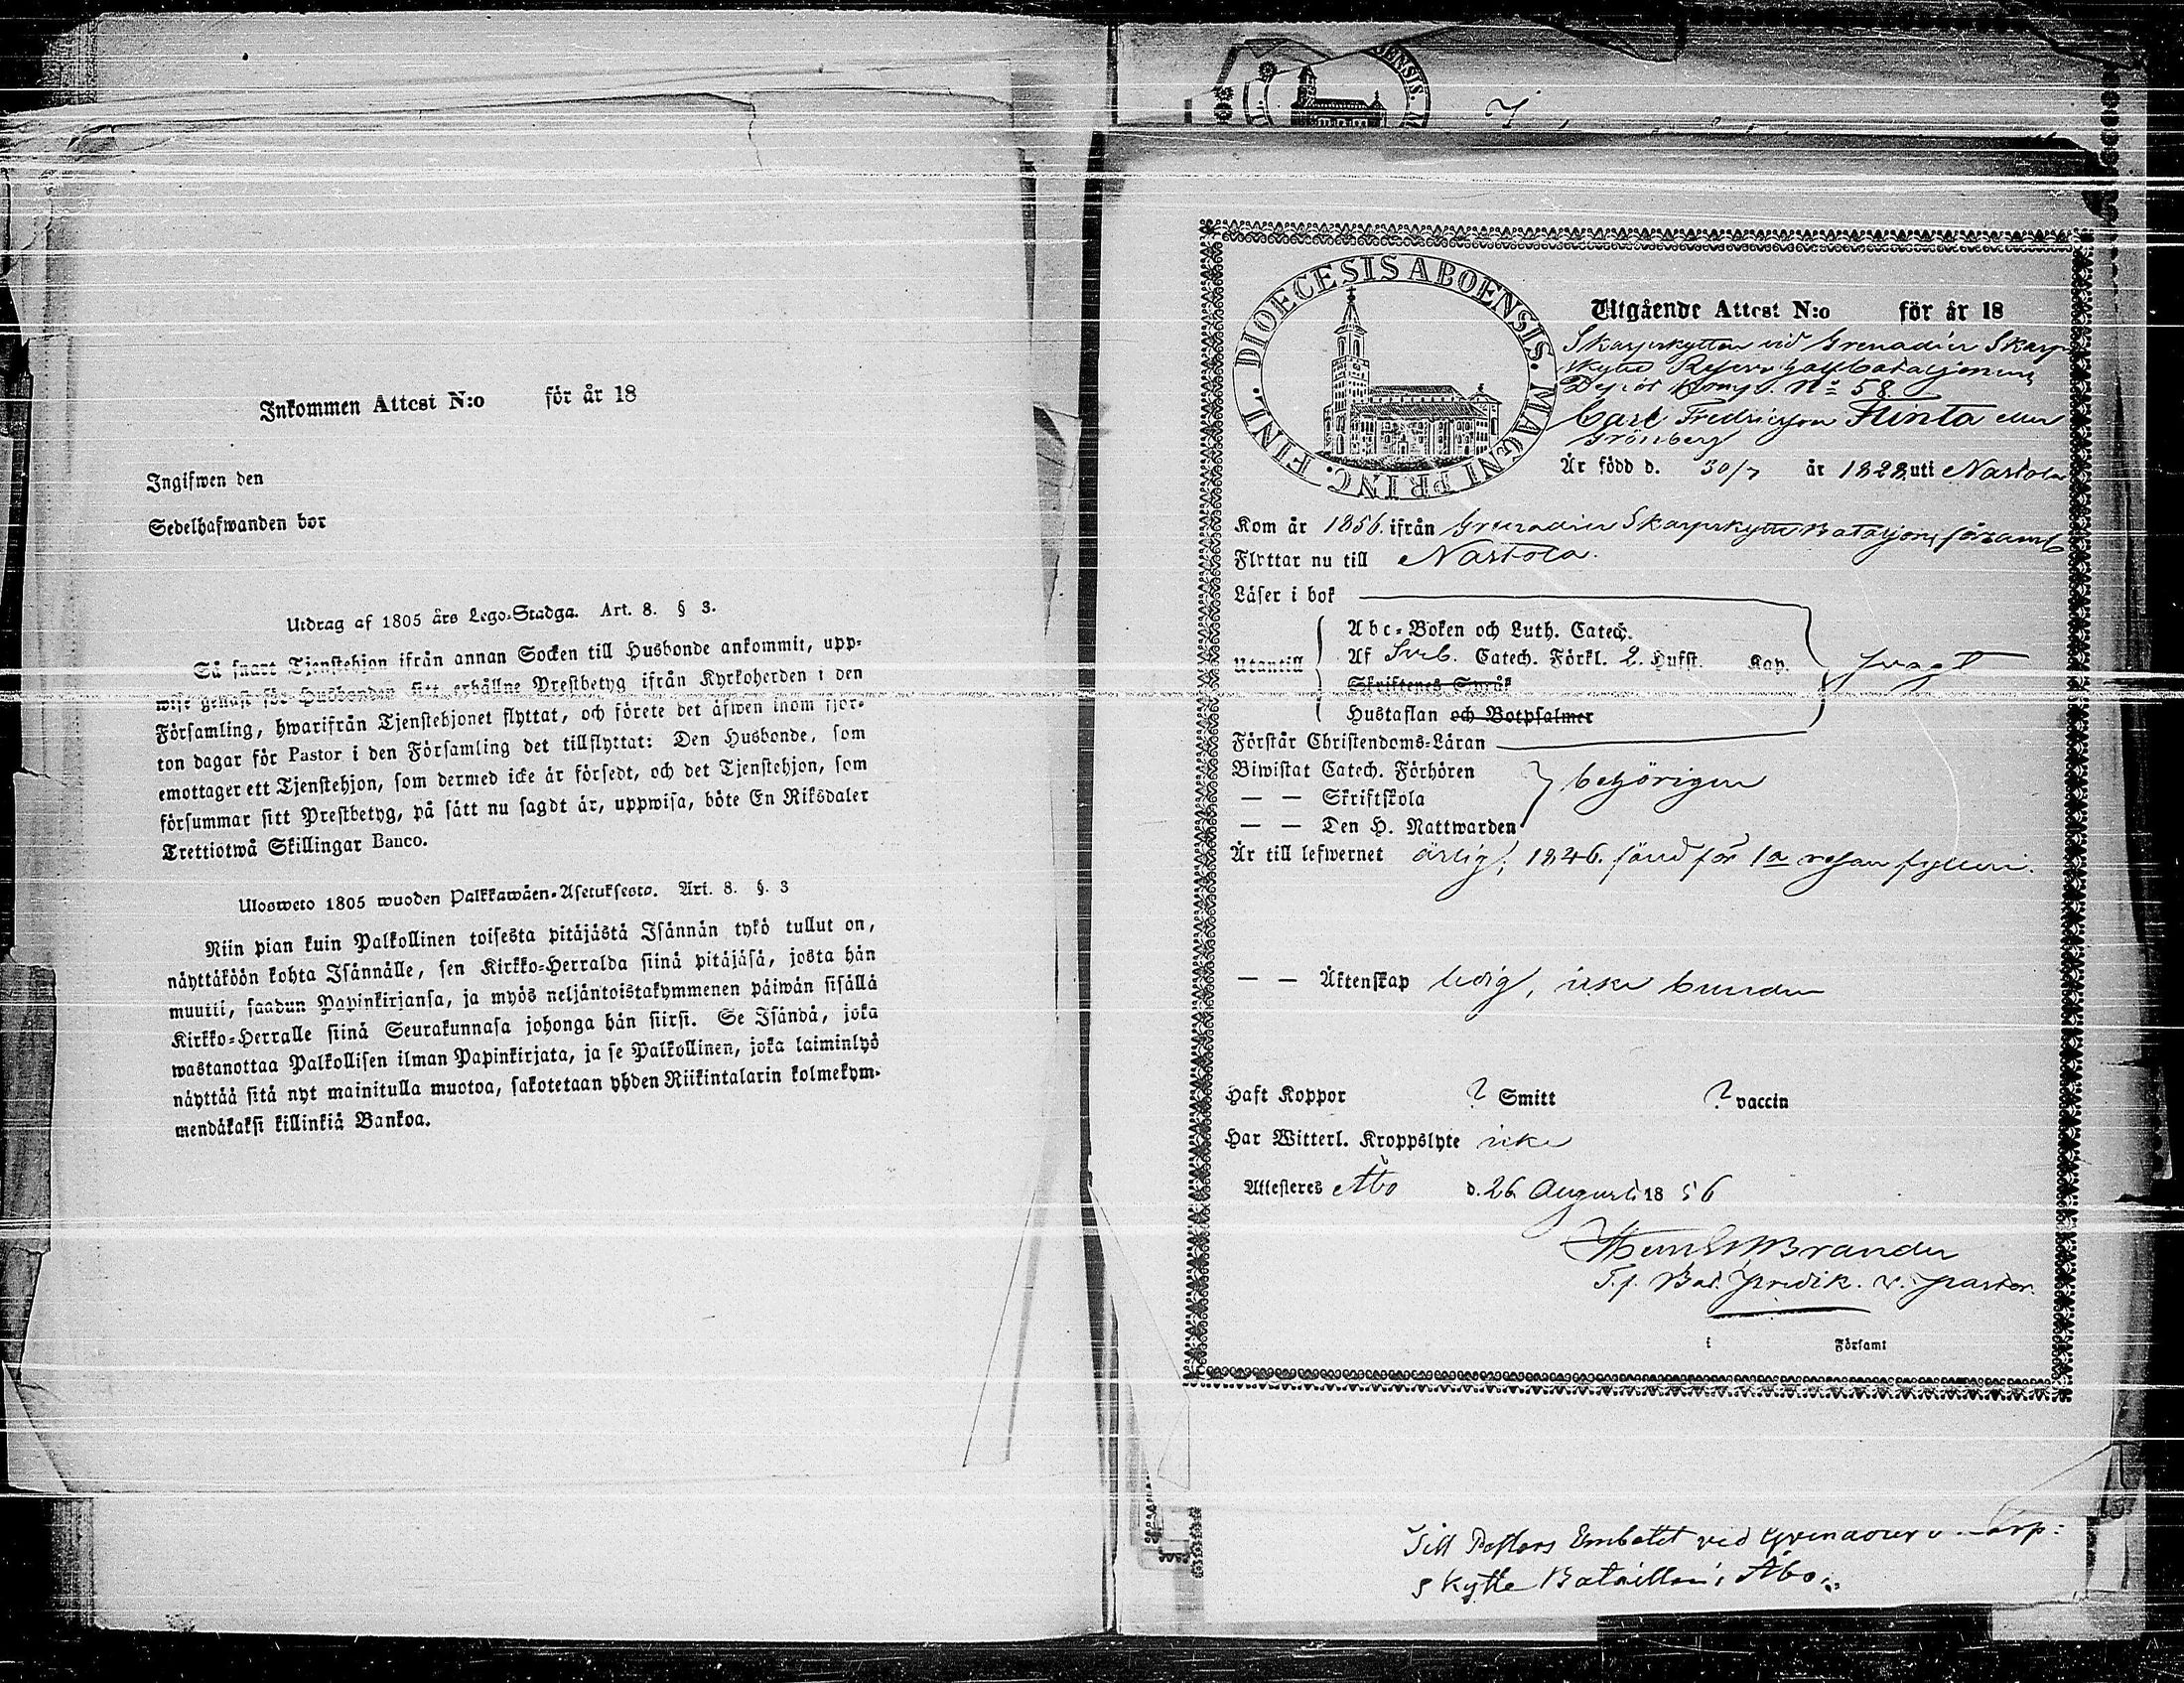 Inkommen Attest N:o för år 18
Ingifwen den
Sedelhafwanden bor
Utdrag af 1805 års Lego-Stadga. Art. 8. § 3.
Så snart Tjenstehjon ifrån annan Socken till Husbonde ankommit, upp-
wise genast för Husbonden sitt erhållne Prestbetyg ifrån Kyrkoherden i den
Församling, hwarifrån Tjenstehjonet flyttat, och förete det äfwen inom fjor-
ton dagar för Pastor i den Församling det tillflyttat: Den Husbonde, som
emottager ett Tjenstehjon, som dermed icke är försedt, och det Tjenstehjon, som
försummar sitt Prestbetyg, på sätt nu sagdt är, uppwisa, böte En Riksdaler
Trettiotwå Skillingar Banco.
Ulosweto 1805 wuoden Palkkawäen-Asetuksesta. Art. 8. §. 3
Niin pian kuin Palkollinen toisesta pitäjästä Isännän tykö tullut on,
näyttäköön kohta Isännälle, sen Kirkko-Herralda siinä pitäjäsä, josta hän
muutti, saadun Papinkirjansa, ja myös neljäntoistakymmenen päiwän sisällä
Kirkko-Herralle siinä Seurakunnasa johonga hän siirsi. Se Isändä, joka
wastanottaa Palkollisen ilman Papinkirjata, ja se Palkollinen, joka laiminlyö
näyttää sitä nyt mainitulla muotoa, sakotetaan yhden Riikintalarin kolmekym-
mendäkaksi killinkiä Bankoa.
ENSIS. M
DIOECESIS ABOENSIS. MAGNI PRINC. FINL.
Utgående Attest N:o för år 18
Skarpskytten vid Grenadier Skarp
skytte Reserv Bataljonens
Depôt Komp. N:o 58
Carl Fredricsson Flinta eller
Grönberg
Är född d. 30/7 år 1828 uti Nastola
Kom år 1856. ifrån Grenadier Skarpskytte Bataljons församl
Flyttar nu till Nastola.
Läser i bok
Abc-Boken och Luth. Catech.
Utantill Af Sveb. Catech. Förkl. 2. Hufst. Kap. svagt
Skriftenes Språk
Hustaflan och Botpsalmer
Förstår Christendoms-Läran
Biwistat Catech. Förhören
— — Skriftskola behörigen
— — Den H. Nattwarden
Är till lefwernet ärlig, 1846. sönd för 1a resan fylleri.
— — Äktenskap ledig, icke bunden
Haft Koppor ? Smitt ? vaccin
Har Witterl. Kroppslyte icke
Attesteres Åbo d. 26 Augusti 18 56
Brander
T.f. Bat. predik. v. pastor.
i Församl
Till Pastors Embetet ved Grenadier arp:
skytte Bataillon i Åbo.